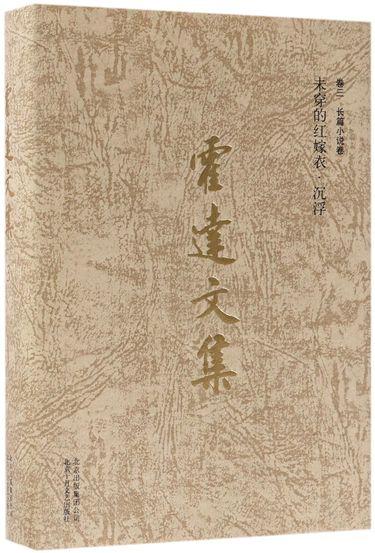 卷三·长篇小说卷
未穿的红嫁衣·沉浮
霍达文集
北京出版集团公司
北京十月文艺出版社